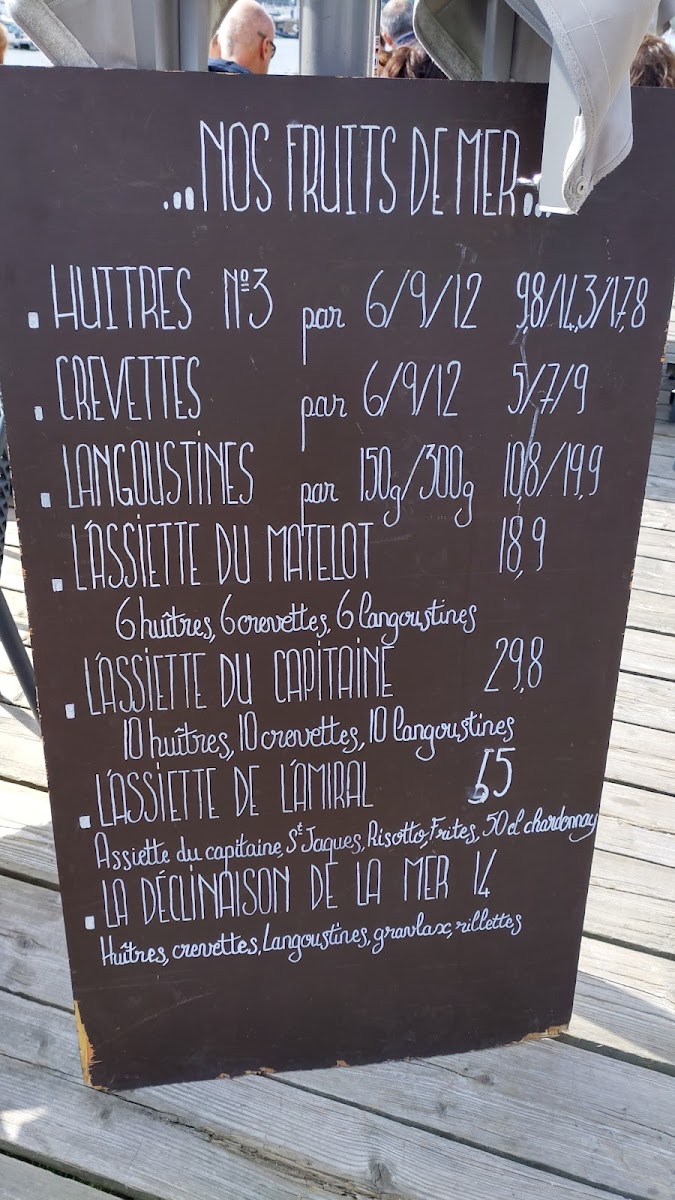 ...NOS FRUITS DE MER...
. HUITRES Nº3 par 6/9/12 9,8/14,3/17,8
. CREVETTES par 6/9/12 5/7/9
. LANGOUSTINES par 150g/300g 10,8/19,9
. L'ASSIETTE DU MATELOT 18,9
6 huîtres, 6 crevettes, 6 langoustines
. L'ASSIETTE DU CAPITAINE 29,8
10 huîtres, 10 crevettes, 10 langoustines
. L'ASSIETTE DE L'AMIRAL 55
Assiette du capitaine, St Jaques, Risotto, Frites, 50 cl chardonnay
. LA DÉCLINAISON DE LA MER 14
Huîtres, crevettes, Langoustines, gravlax, rillettes